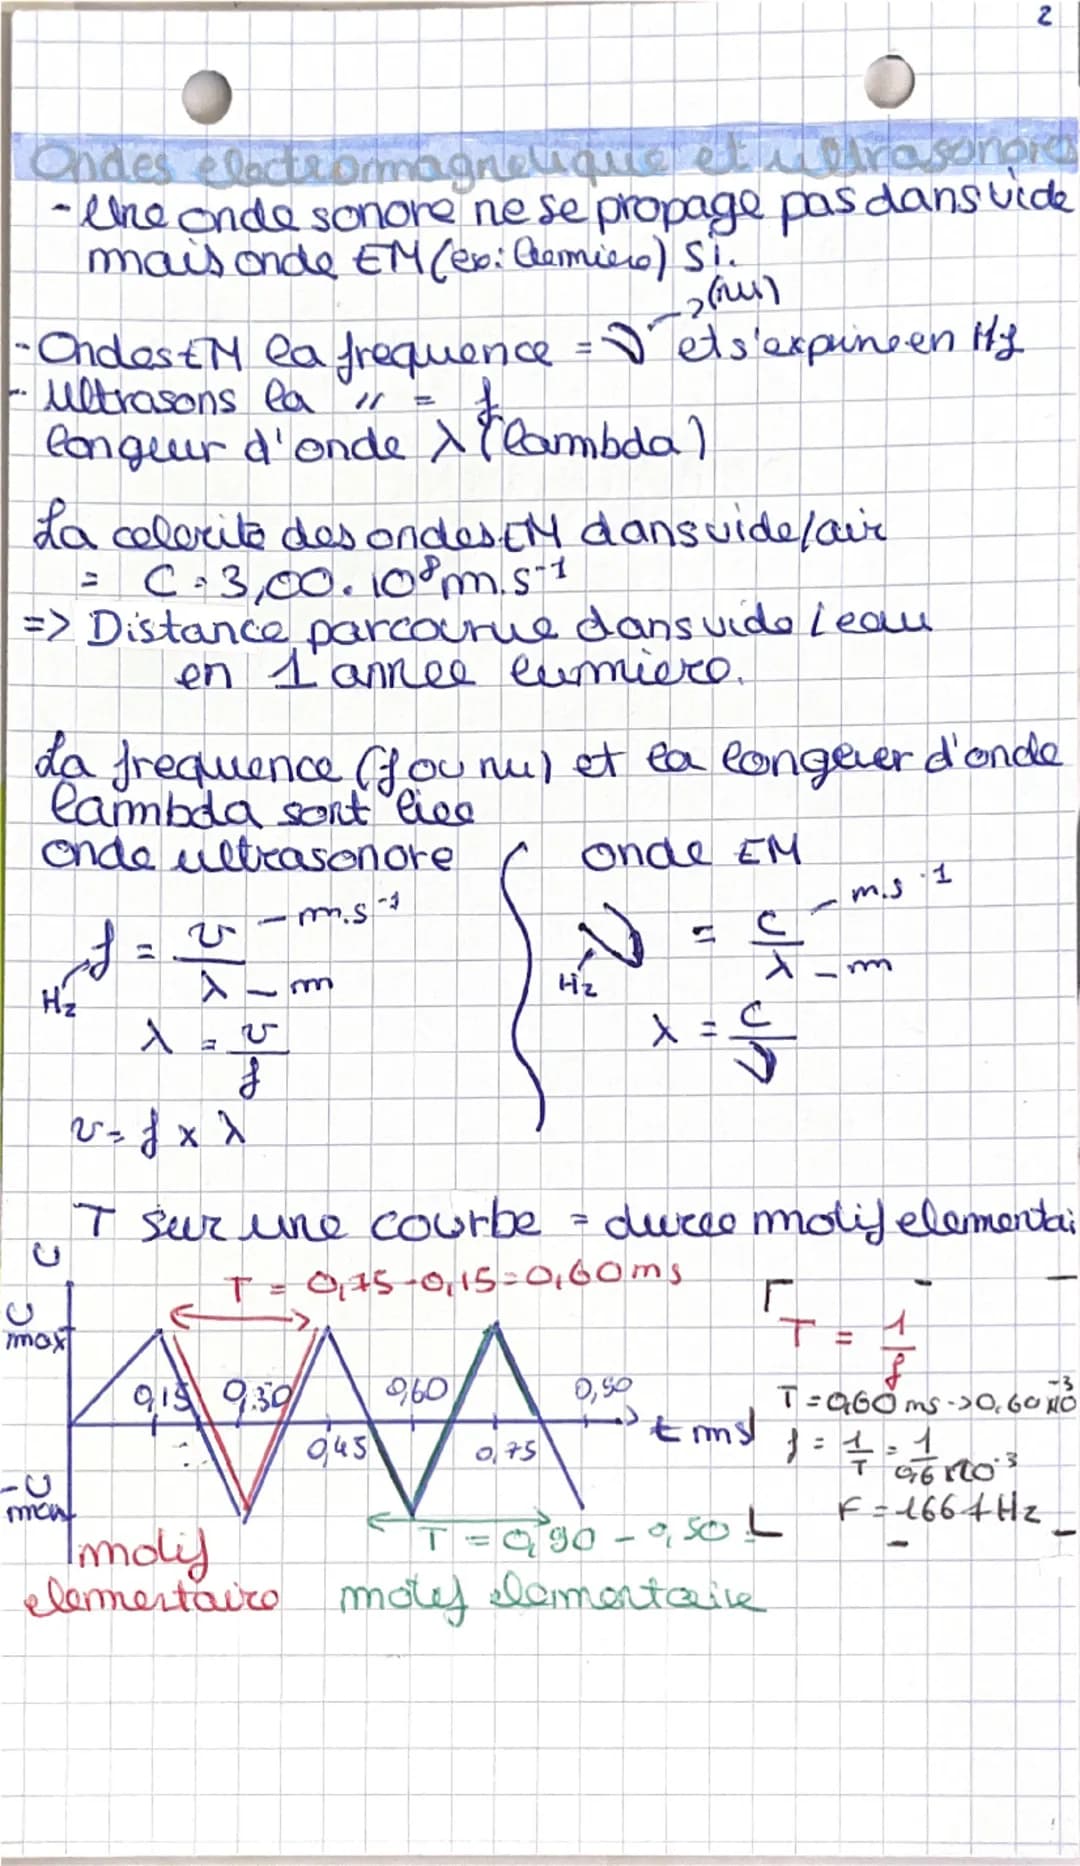 2
Ondes electromagnetique et ultrasonores
- Une onde sonore ne se propage pas dans vide
mais onde EM (ex: lumiere) si.
→ (nu)
- Ondes EM la frequence = ν et s'exprime en Hz
- Ultrasons la " = f
longeur d'onde λ (lambda)
La celerite des ondes EM dans vide/air
= C = 3,00.10⁸ m.s⁻¹
=> Distance parcourue dans vide / eau
en 1 annee lumiere.
La frequence (f ou nu) et la longeuer d'onde
lambda sont liee
onde ultrasonore onde EM
f = v/λ - m.s⁻¹ - m Hz
ν = c/λ - m.s⁻¹ - m Hz
λ = v/f
λ = c/ν
v = f x λ
T sur une courbe = duree motif elementai
U
T = 0,75 - 0,15 = 0,60 ms
U max
T = 1/f
0,15 0,30 0,60 0,90
T = 0,60 ms -> 0,60 x10⁻³
0,45 0,75 t ms
f = 1/T = 1/0,6 x10⁻³
-U max
F = 1667 Hz
T = 0,90 - 0,50
motif
elementaire
motif elementaire